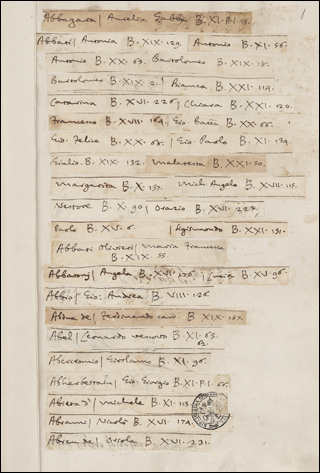 1
Abbagara / Aurelia Gabba B. XI. P. I. 18.
Abbati / Antonia B. XIX. 129. Antonio B. XI. 56.
Antonio B. XX. 63. Bartolomeo B. XIX. 18.
Bartolomeo B. XIX. 21. Bianca B. XXI. 119.
Catarina B. XVI. 226 / Chiara B. XXI. 120.
Francesco B. XVII. 164. Gio. Batta B. XX. 66.
Gio. Felice B. XX. 68. / Gio. Paolo B. XI. 134.
Giulio. B. XIX. 132. Malatesta B. XXI. 50.
Margarita B. X. 137. Mich. Angelo B. XVII. 115.
Nestore B. X. 90 / Orazio B. XVI. 227.
Paolo B. XV. 6. / Sigismondo B. XXI. 131.
Abbati Olivieri / Maria Francesca
B. XIX. 55.
Abbatony / Angela B. XVI. 176. / Lucia B. XV. 96.
Abbio / Gio: Andrea B. VIII. 126.
Abdua de / Ferdinando B. XIX. 157.
Abel / Leonardo vescovo B. XI. 63.
62.
Abercromio / Girolamo B. XI. 96.
Abherbestain / Gio. Giorgio B. XI. P. I. 66.
Abreta d' / Michele B. XI. 113.
Abrami / Nicolò B. XVI. 174.
Abreu de / Oriola B. XVI. 231.